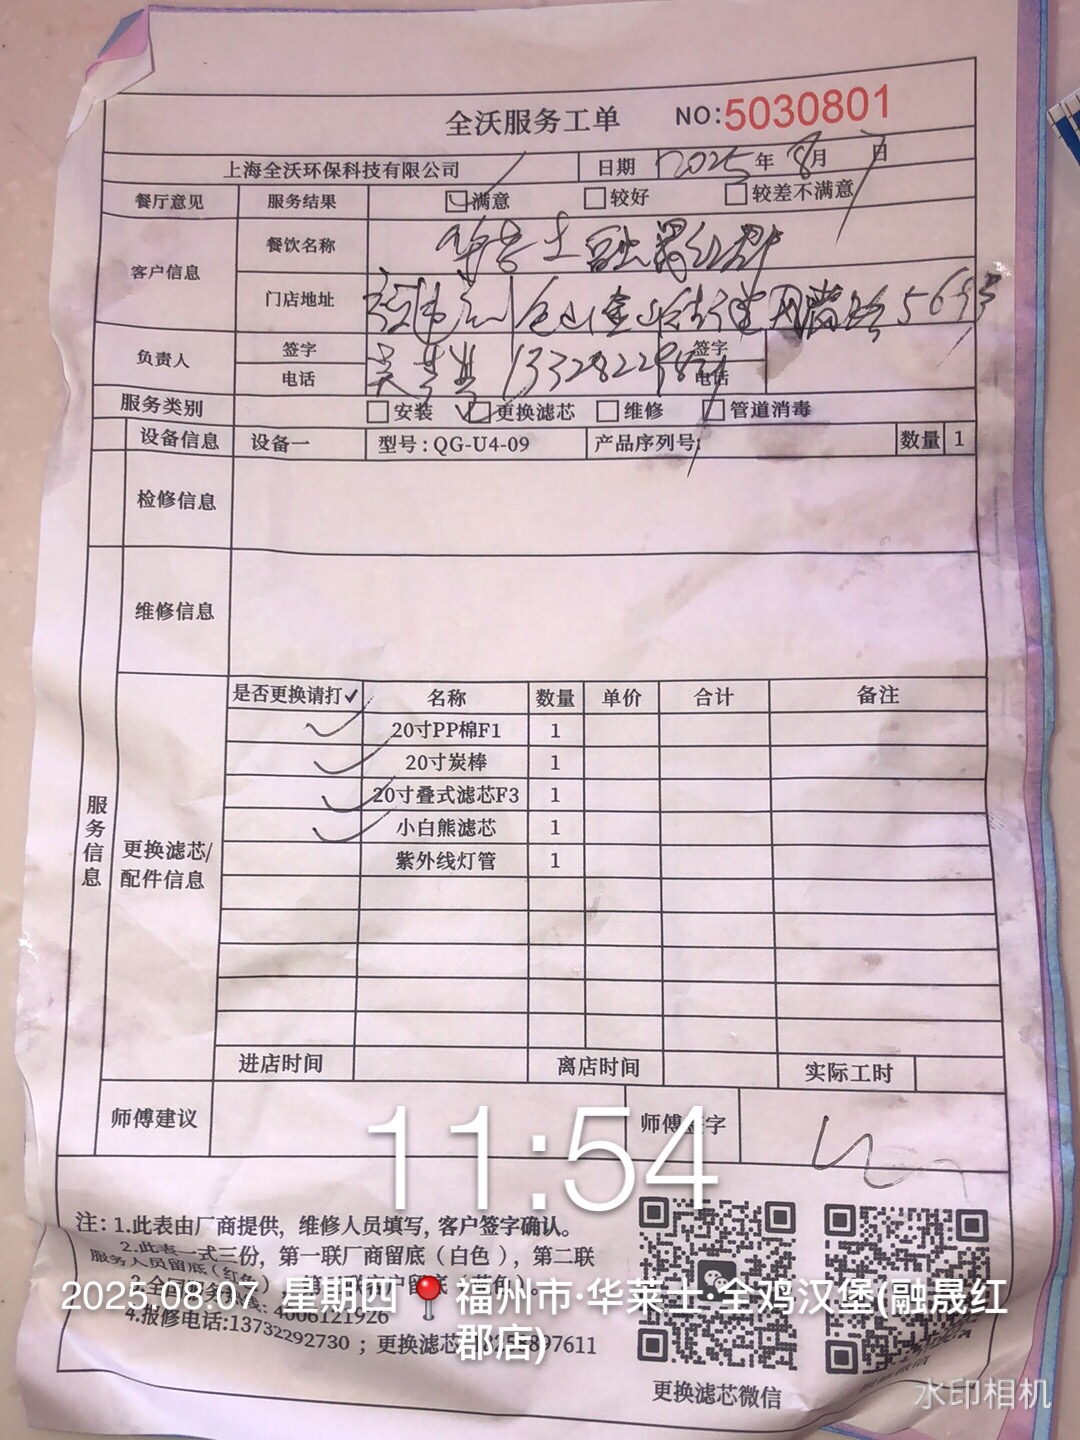 全沃服务工单 NO:5030801
上海全沃环保科技有限公司 日期 2025年 8月 7日
餐厅意见 服务结果 满意 较好 较差不满意
客户信息 餐饮名称 华莱士融晟红郡
门店地址 福州市仓山金山街道
负责人 签字 签字
电话 电话
服务类别 安装 更换滤芯 维修 管道消毒
设备信息 设备一 型号:QG-U4-09 产品序列号: 数量 1
检修信息
维修信息
服务信息
更换滤芯/配件信息
是否更换请打✓ 名称 数量 单价 合计 备注
✓ 20寸PP棉F1 1
✓ 20寸炭棒 1
✓ 20寸叠式滤芯F3 1
✓ 小白熊滤芯 1
紫外线灯管 1
进店时间 离店时间 实际工时
师傅建议 师傅签字
11:54
注: 1.此表由厂商提供, 维修人员填写, 客户签字确认。
2.此表一式三份, 第一联厂商留底(白色), 第二联
服务人员留底(红色)
4006121926
2025.08.07 星期四 福州市·华莱士·全鸡汉堡(融晟红
郡店)
4.报修电话:13732292730 ; 更换滤芯
更换滤芯微信
水印相机